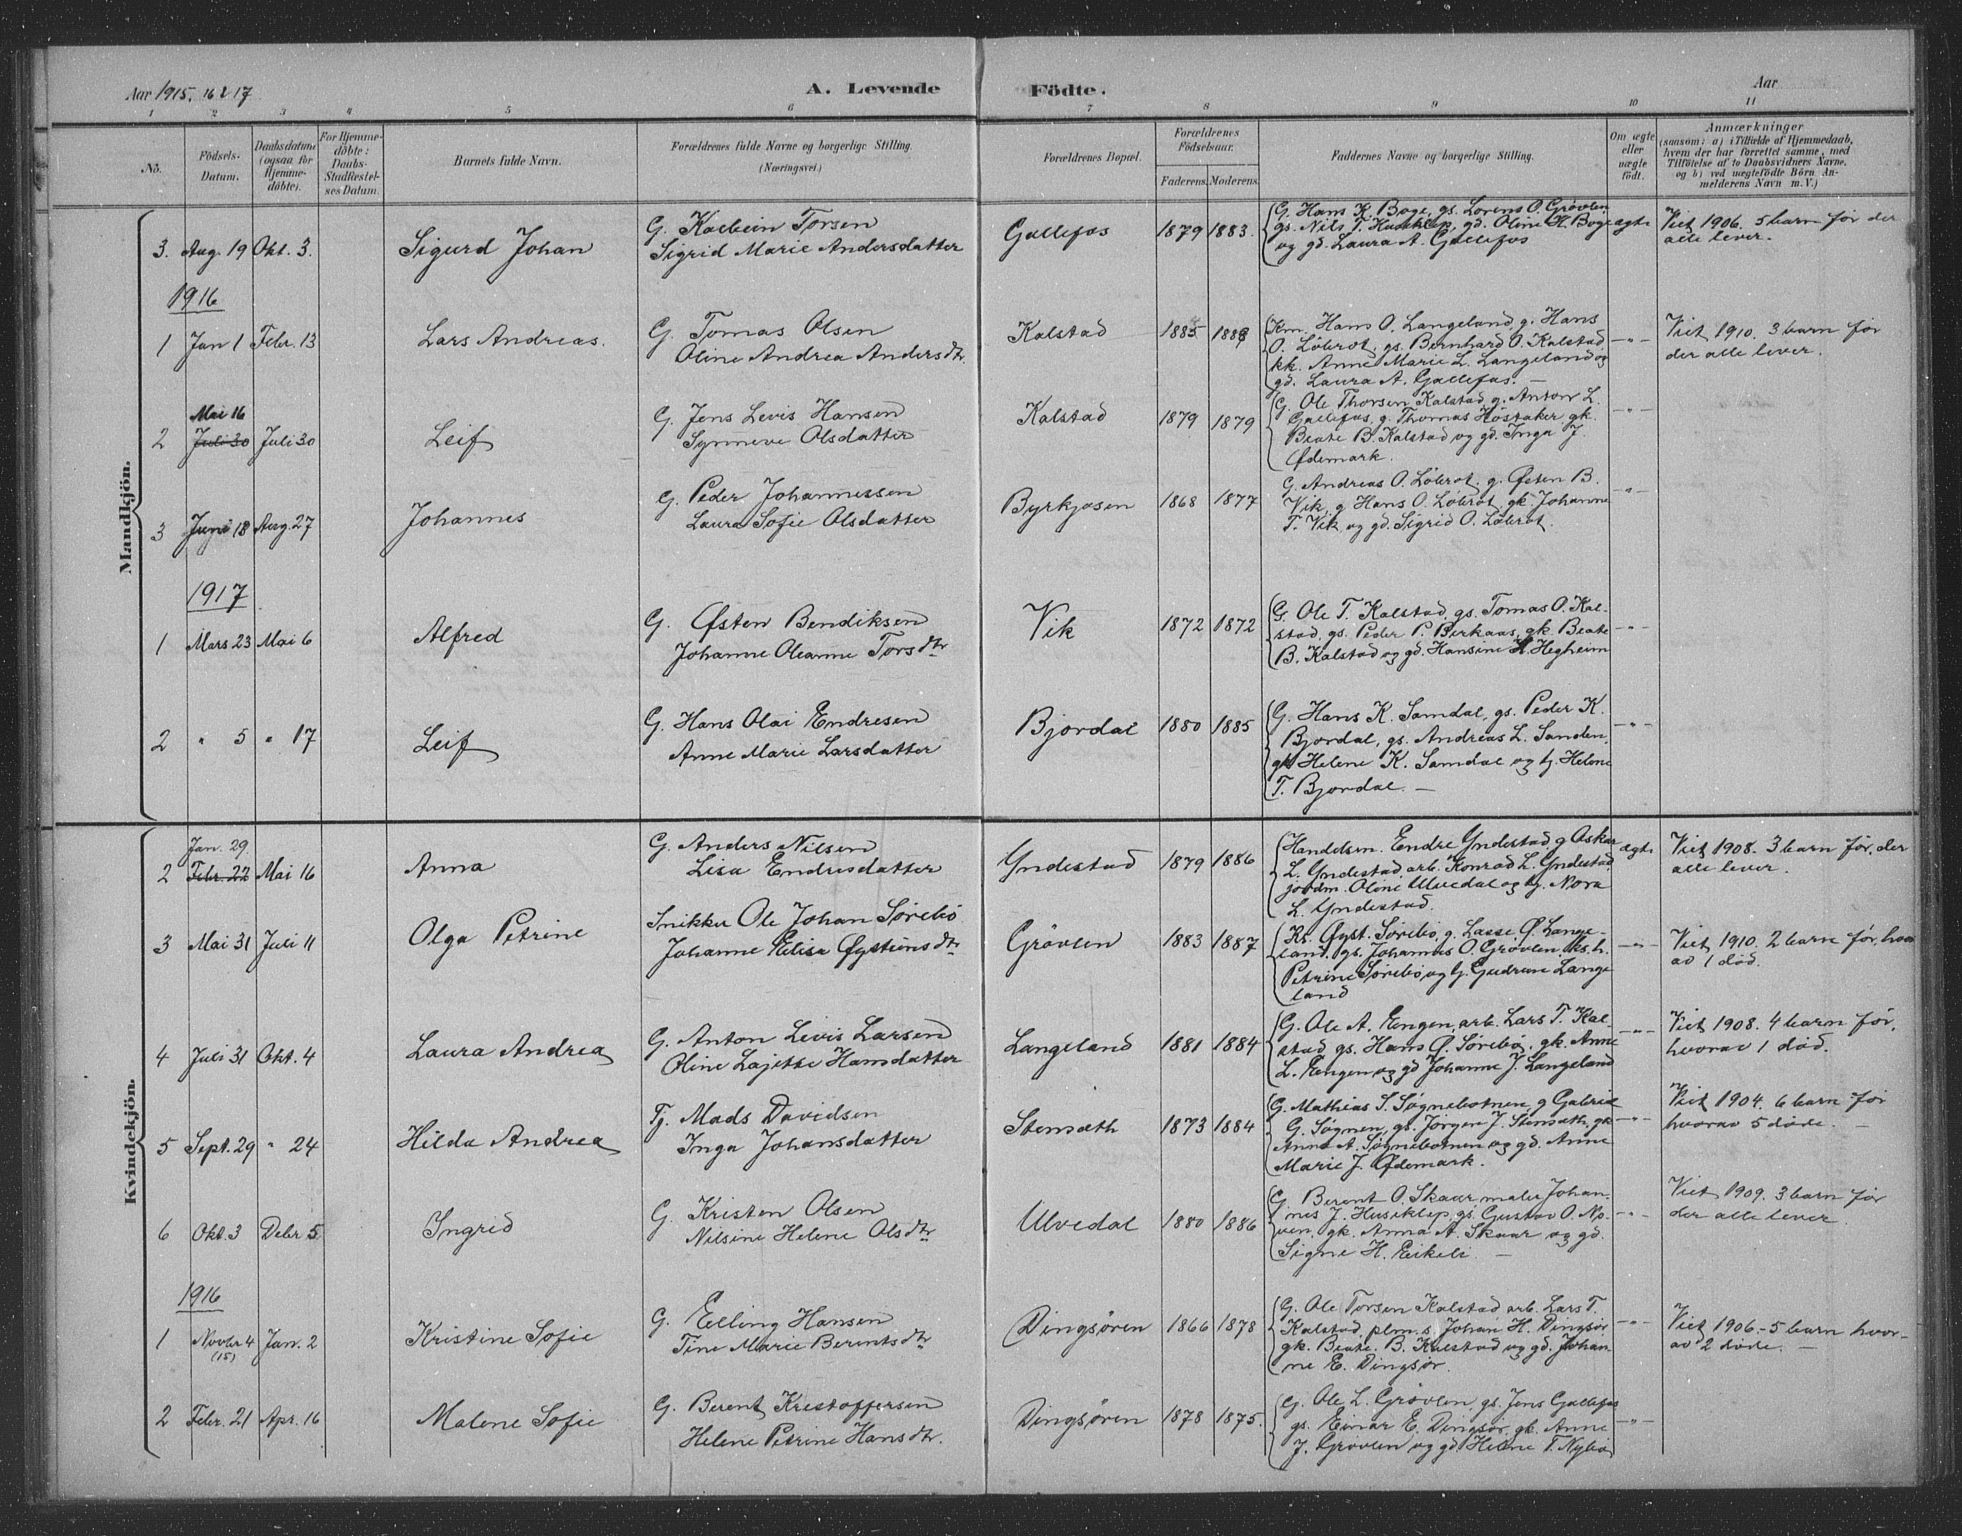 Aar 1915, 16 & 17
A. Levende Födte.
Aar
1 2 3 4 5 6 7 8 9 10 11
No.
Födsels-Datum.
Daabsdatum (ogsaa for Hjemmedöbte).
For Hjemmedöbte: Daabs-Stadfæstelses Datum.
Barnets fulde Navn.
Forældrenes fulde Navne og borgerlige Stilling.
(Næringsvei.)
Forældrenes Bopæl.
Forældrenes Födselsaar.
Faderens. Moderens.
Faddernes Navne og borgerlige Stilling.
Om ægte eller uægte födt.
Anmærkninger
(saasom: a) i Tilfælde af Hjemmedaab,
hvem der har forrettet samme, med
Tilföielse af to Daabsvidners Navne,
og b) ved uægtefödte Börn An-
melderens Navn m. V.)
Mandkjön.
3. Aug. 19 Okt. 3. Sigurd Johan
G. Kolbein Torsen
Sigrid Marie Andersdatter
Gallefos 1879 1883.
G. Hans K. Boge, gs. Lorens O. Grøvlen
gs. Nils T. Husetklep, gd. Oline H. Boge
og gd. Laura A. Gallefos
ægte
Viet 1906. 5 barn før der
alle lever.
1916
1 Jan 1 Febr. 13 Lars Andreas.
G. Tomas Olsen
Oline Andrea Andersdtr.
Kalstad 1885 1889
Km. Hans O. Langeland, g. Hans
O. Løbrot, gs. Bernhard O. Kalstad
kk. Anne Marie L. Langeland og
gd. Laura A. Gallefos. —
—"—
Viet 1910. 3 barn før
der alle lever.
Mai 16
2 Juli 30 Juli 30 Leif
G. Jens Levis Hansen
Synneve Olsdatter
Kalstad 1879 1879
G. Ole Thorsen Kalstad, g. Anton L.
Gallefos, g. Thomas Høstaker gk.
Beate B. Kalstad og gd. Inga J.
Ødemark.
—"—
3 Juni 18 Aug. 27 Johannes
G. Peder Johannessen
Laura Sofie Olsdatter
Byrkjosen 1868 1877
G. Andreas O. Løbrot, g. Østen B.
Vik, g Hans O. Løbrot, gk Johanne
T. Vik og gd. Sigrid O. Løbrot.
—"—
1917
1 Mars 23 Mai 6 Alfred
G. Østen Bendiksen
Johanne Oleanne Torsdtr
Vik 1872 1872
G. Ole T. Kalstad, gs. Tomas O. Kal-
stad, gs. Peder P. Birkaas, gk. Beate
B. Kalstad og gd. Hansine H. Hegheim
—"—
2 " 5 " 17 Leif
G. Hans Olai Endresen
Anne Marie Larsdatter
Bjordal 1880 1885
G. Hans K. Samdal, gs. Peder K.
Bjordal, gs. Andreas L. Sanden,
gk Helene K. Samdal og tj. Helene
T. Bjordal. —
—"—
Kvindekjön.
Jan. 29.
2 Febr. 22 Mai 16 Anna
G. Anders Nilsen
Lisa Endresdatter
Yndestad 1879 1886
Handelsm. Endre Yndestad, g Oskar
L. Yndestad, arb. Konrad L. Yndestad,
jordm. Oline Ulvedal og tj. Nora
L. Yndestad.
ægte
Viet 1908. 3 barn før, der
alle lever.
3 Mai 31 Juli 11 Olga Petrine
Snikker Ole Johan Sørebø
Johanne Elisa Øysteinsdtr
Grøvlen 1883 1887
Ks. Øyst. Sørebø, g. Lasse Ø. Lange-
land, gs. Johannes O. Grøvlen, ks. h.
Petrine Sørebø og tj. Gudrun Lange
land
—"—
Viet 1910. 2 barn før, hvor
av 1 død.
4 Juli 31 Okt. 4 Laura Andrea
G. Anton Levis Larsen
Oline Lajette Hansdatter
Langeland 1881 1884
G. Ole A. Engen, arb. Lars T. Kal-
stad gs. Hans Ø. Sørebø, gk. Anne
L. Engen og gd Johanne J. Langeland
—"—
Viet 1908. 4 barn før,
hvorav 1 død.
5 Sept. 29 " 24 Hilda Andrea
Tj. Mads Davidsen
Inga Johansdatter
Stensæth 1873 1884
G. Mathias S. Søgnebotnen, g Gabriel
G. Søgnen, gs. Jørgen J. Stensæth, gk
Anna A. Søgnebotnen og gd. Anne
Marie J. Ødemark.
—"—
Viet 1904. 6 barn før
hvorav 5 døde. —
6 Okt. 3 Debr 5 Ingrid
G Kristen Olsen
Nilsine Helene Olsdtr
Ulvedal 1880 1886
G. Berent O. Skaar, maler Johan-
nes J. Husetklep, gs. Gustav O. No-
ven, gk. Anna A. Skaar og gd.
Signe H. Eikeli —
—"—
Viet 1909. 3 barn før
der alle lever.
1916
1 Novbr 4 (15) Jan. 2 Kristine Sofie
G. Elling Hansen
Tine Marie Berentsdtr
Dingsøren 1866 1878
G. Ole Torsen Kalstad, arb. Lars T.
Kalstad, plm. s Johan H. Dingsør
gk. Beate. B. Kalstad og gd. Johan
ne E. Dingsør.
—"—
Viet 1906. – 5 barn hvor-
av 2 døde. —
2 Febr. 21 Apr. 16 Malene Sofie
G. Berent Kristoffersen
Helene Petrine Hansdtr.
Dingsøren 1878 1875.
G. Ole L. Grøvlen, gs. Jens Gallefos
gs. Einar E. Dingsør, gk. Anne
J. Grøvlen og gd Helene T. Nybø
—"—